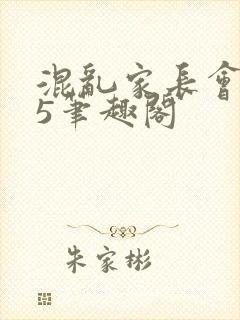 混亂家長會
5筆趣閣
朱家彬